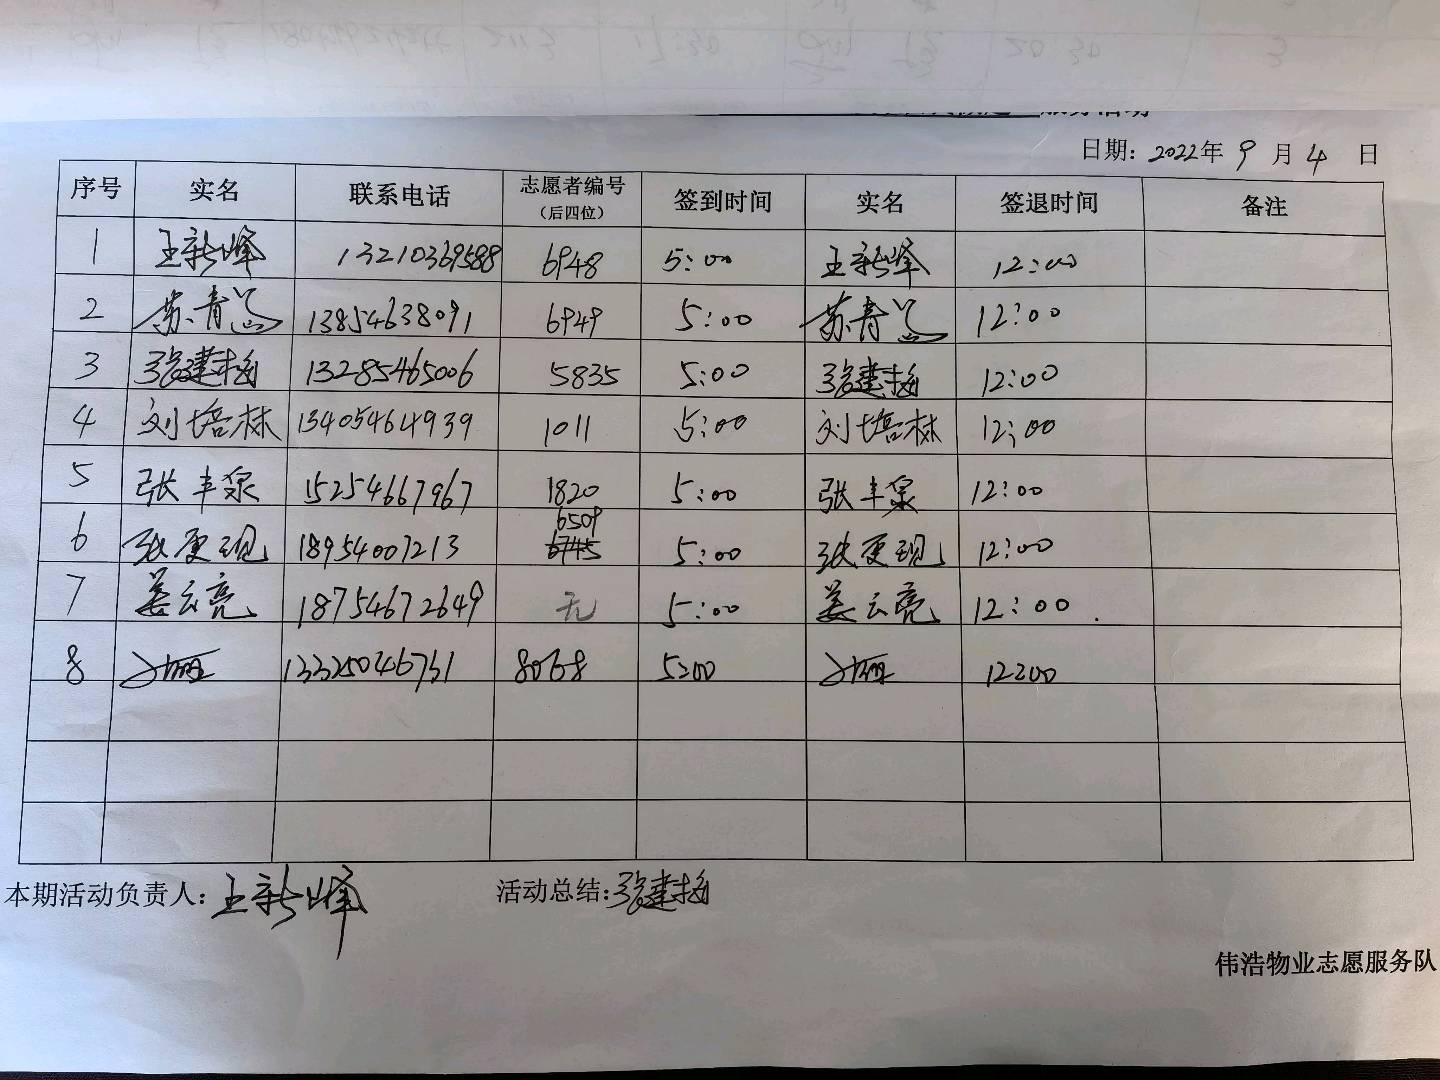 服务活动
日期：2022年9月4日
序号 实名 联系电话 志愿者编号（后四位） 签到时间 实名 签退时间 备注
1 王新峰 13210369588 6948 5:00 王新峰 12:00
2 苏青兰 13854638091 6949 5:00 苏青兰 12:00
3 张建梅 13285465006 5835 5:00 张建梅 12:00
4 刘培林 13405464939 1011 5:00 刘培林 12:00
5 张丰泉 15254667967 1820 5:00 张丰泉 12:00
6 张更现 18954007213 6509 6745 5:00 张更现 12:00
7 姜云亮 18754672649 无 5:00 姜云亮 12:00
8 13325046731 8068 5:00 12:00
本期活动负责人：王新峰 活动总结：张建梅
伟浩物业志愿服务队